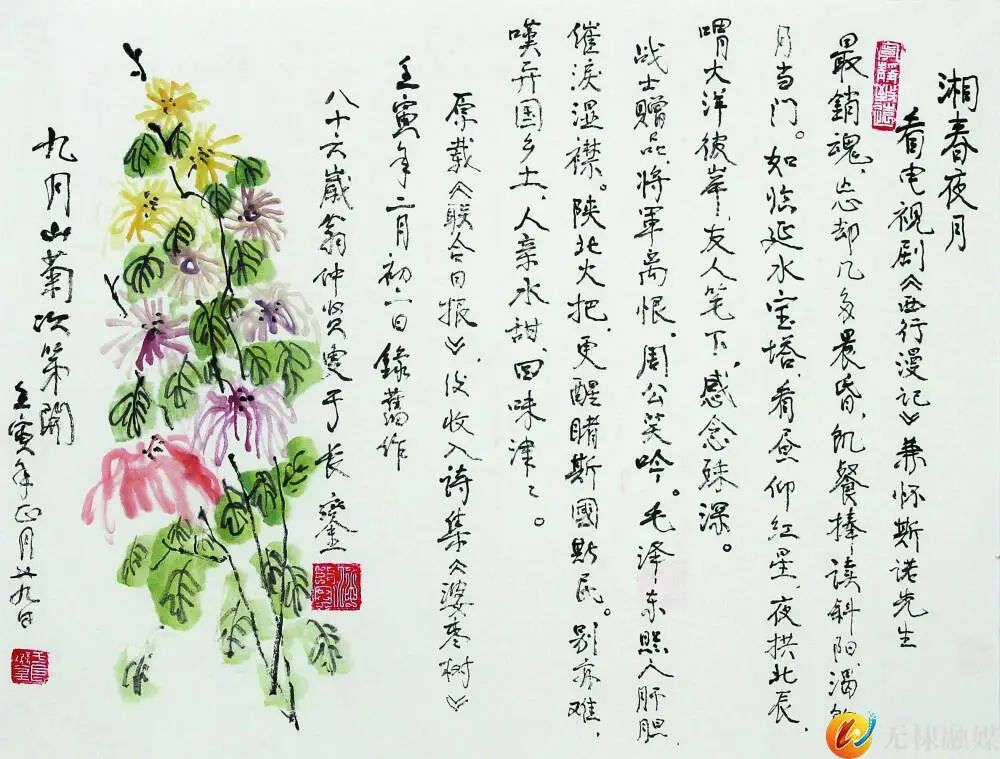 湘春夜月
看电视剧《西行漫记》兼怀斯诺先生
最銷魂,忘却几多晨昏,飢餐捧读斜阳,渴飲
月当门。如临延水宝塔,看昼仰红星,夜拱北辰,
喟大洋彼岸,友人笔下,感念殊深。
战士赠品,将軍离恨。周公笑吟。毛泽东照人肝胆,
催淚湿襟。陕北火把,更醒睹斯國斯民。别亦难,
嘆异国乡土,人亲水甜,回味津々。
原载《联合日报》,后收入诗集《婆枣树》
壬寅年二月初二日錄舊作
八十六歲翁仲贤書于长
九月山菊次第開
壬寅年正月廿九日
无棣融媒